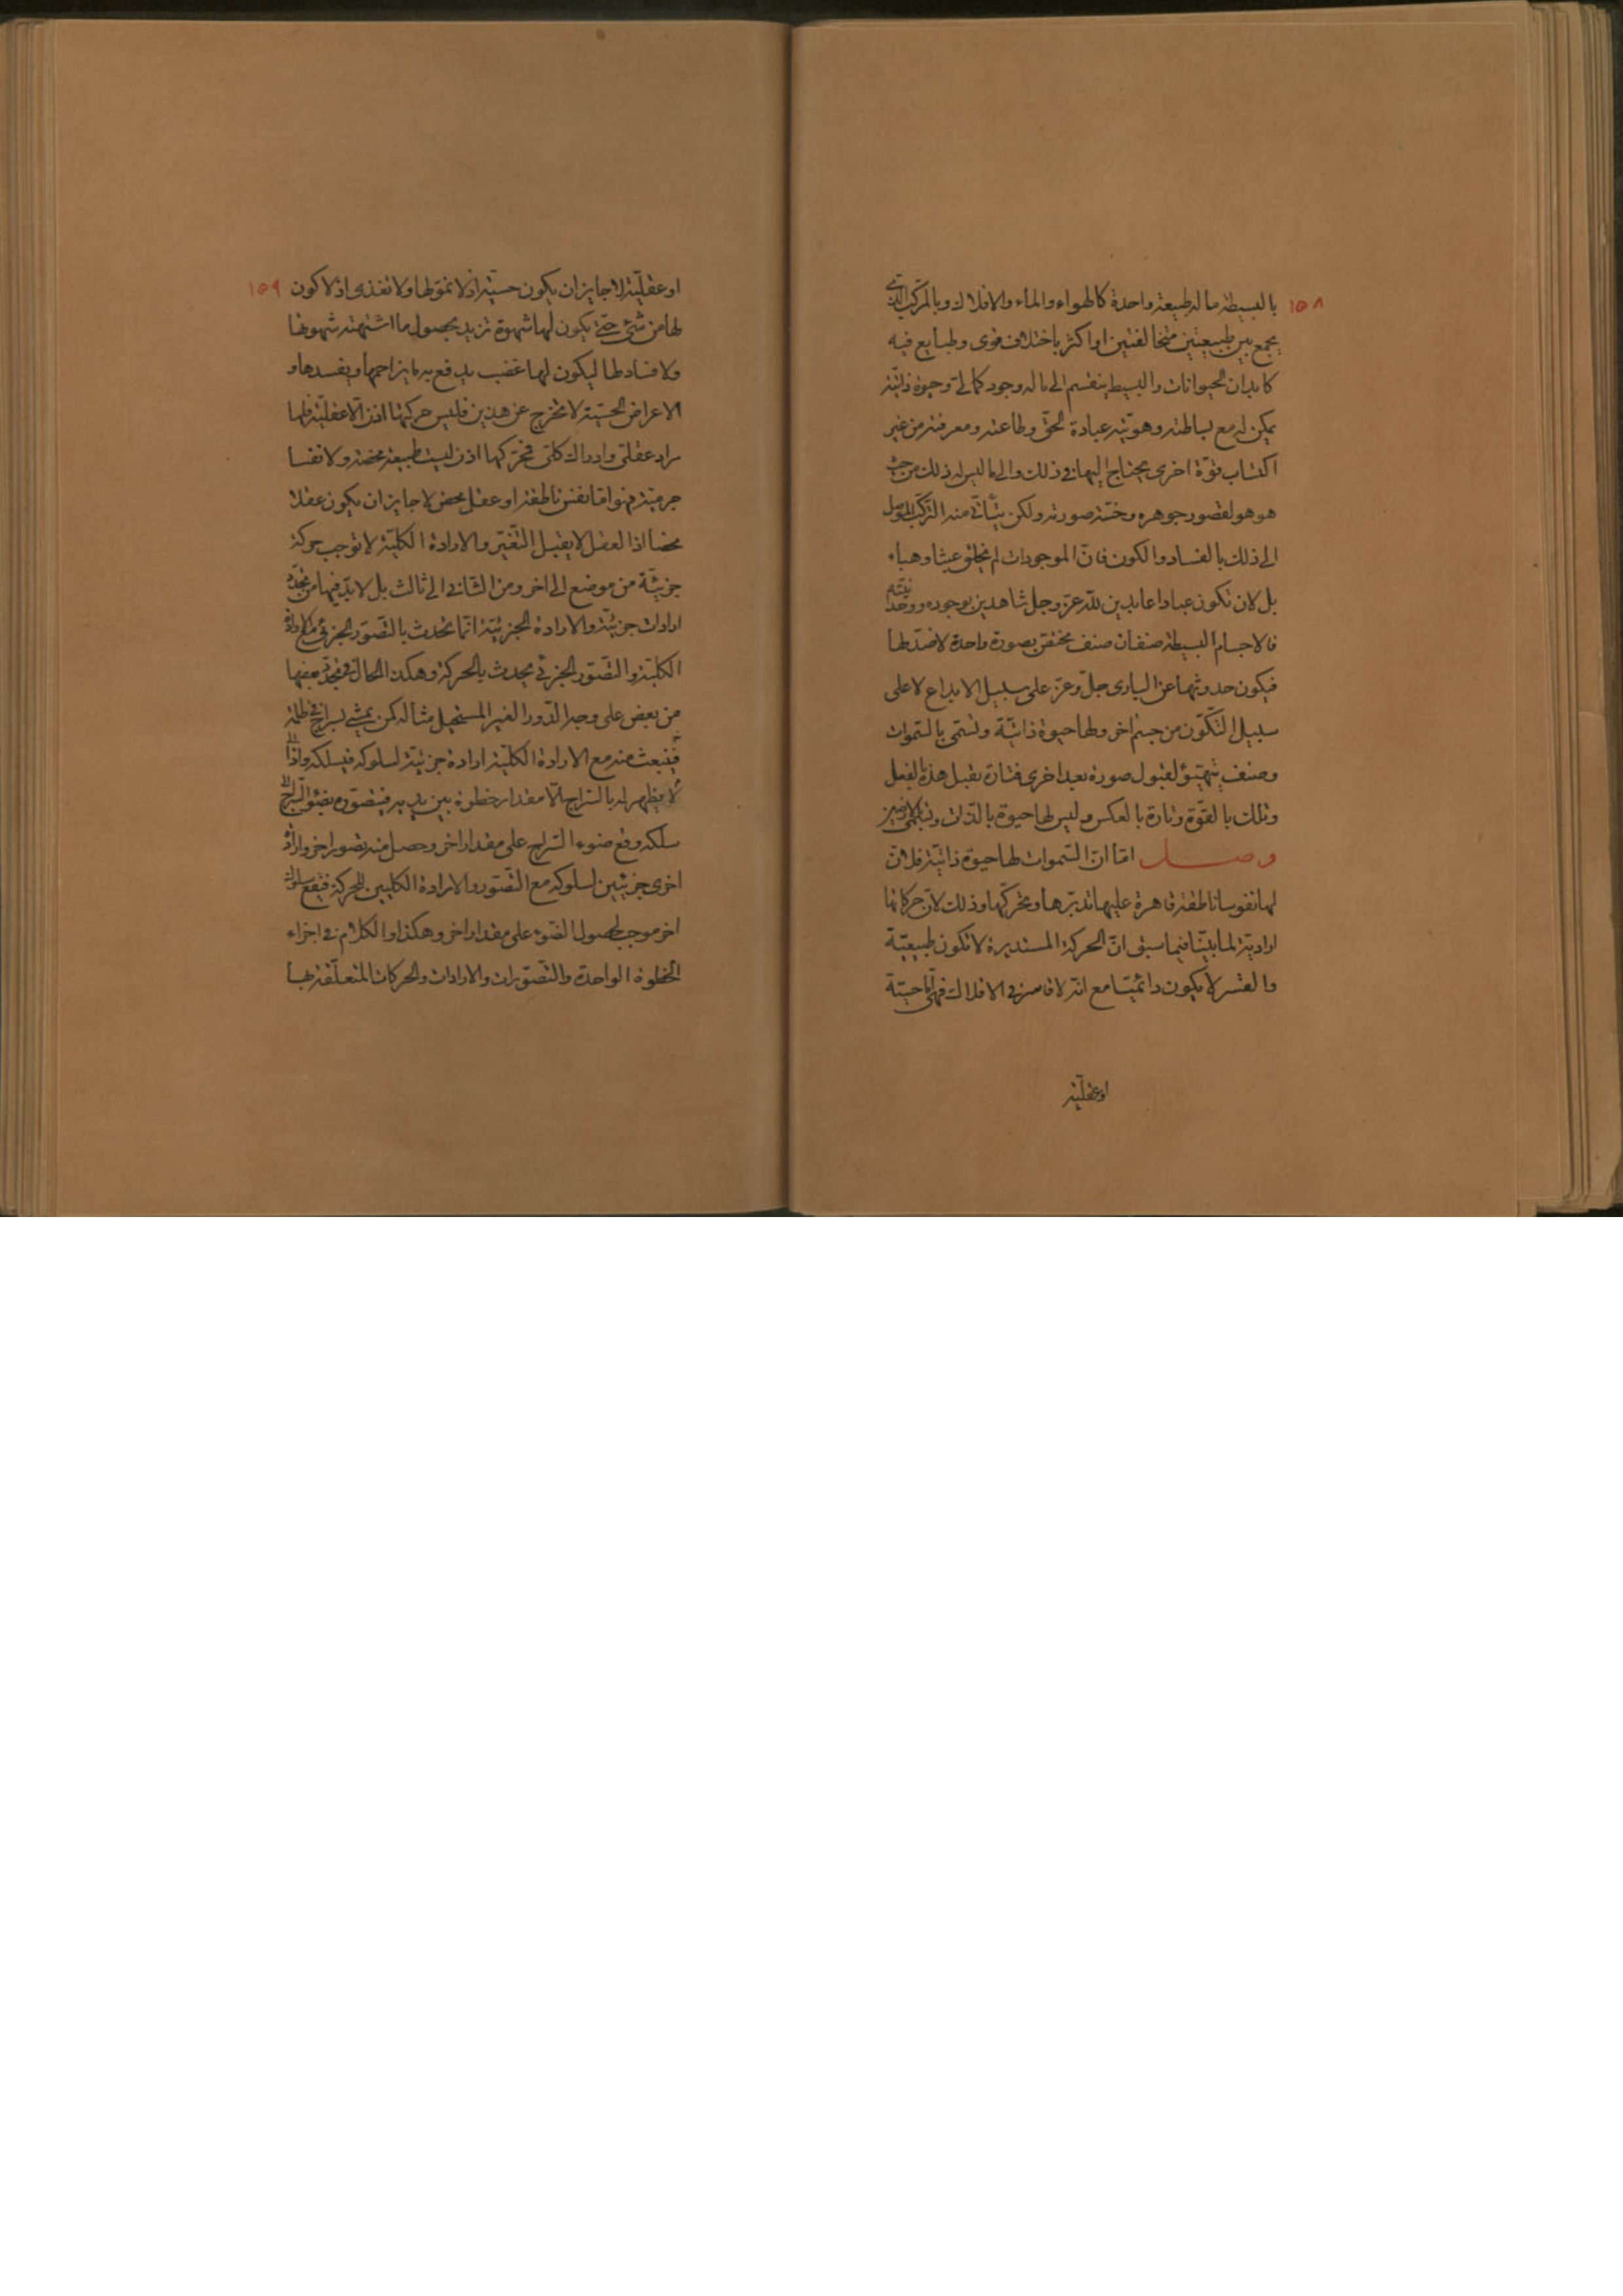 ١٥٨
بالبسيطة ماله طبيعة واحدة كالهواء والماء والافلاك وبالمركب الذي
يجمع بين طبيعتين متخالفتين او اكثر باختلاف قوى وطبايع فيه
كابدان الحيوانات والبسيط ينقسم الى ما له وجود كمالي وحيوة ذاتية
يمكن له مع بساطته وهويته عبادة الحق وطاعته ومعرفته من غير
اكتساب قوة اخرى يحتاج اليها في ذلك والى ما ليس له ذلك من حيث
هو هو لقصور جوهره وخسة صورته ولكن يتأتى منه التركب الموصل
الى ذلك بالفساد والكون فان الموجودات لم يخلق عبثا وهباء
بل لان تكون عبادا عابدين لله عز وجل شاهدين بوجوده ووحدانيته
فالاجسام البسيطة صنفان صنف مختص بصورة واحدة لا ضد لها
فيكون حدوثها عن الباري جل وعز على سبيل الابداع لا على
سبيل التكون من جسم اخر ولها حيوة ذاتية وتسمى بالسموات
وصنف يتهيؤ لقبول صورة بعد اخرى فتارة يقبل هذه بالفعل
وتلك بالقوة وتارة بالعكس وليس لها حيوة بالذات وتسمى بالارضين
وصل اما ان السموات لها حيوة ذاتية فلان
لها نفوسا ناطقة قاهرة عليها تدبرها وتحركها وذلك لان حركاتها
ارادية لما بينا فيما سبق ان الحركة المستديرة لا تكون طبيعية
والقسر لا يكون دائميا مع انه لا قاسر في الافلاك فهي اما حسية
او عقلية
١٥٩
او عقلية لا جايز ان يكون حسية اذ لا نمو لها ولا تغذى اذ لا كون
لها من شئ حتى يكون لها شهوة تزيد بحصول ما اشتهته شهوتها
ولا فساد لها ليكون لها غضب يدفع به ما يزاحمها ويفسدها و
الاعراض الحسية لا تخرج عن هذين فليس حركتها اذن الا عقلية فلها
مراد عقلي وادراك كلي فمحركها اذن ليست طبيعة محضة ولا نفسا
جرمية فهو اما نفس ناطقة او عقل محض لا جايز ان يكون عقلا
محضا اذا العقل لا يقبل التغير والارادة الكلية لا توجب حركة
جزئية من موضع الى اخر ومن الثاني الى ثالث بل لا بد فيها من تجدد
ارادات جزئية والارادة الجزئية انما تحدث بالتصور الجزئي مع الارادة
الكلية والتصور الجزئي يحدث بالحركة وهكذا الحال في تجدد بعضها
من بعض على وجه الدور الغير المستحيل مثاله كمن يمشي بسراج في ظلمة
لا يظهر له بالسراج الا مقدار خطوة بين يديه فيتصوره بضوء السراج
فينبعث منه مع الارادة الكلية ارادة جزئية لسلوكه فيسلكه واذا
سلكه وقع ضوء السراج على مقدار اخر وحصل منه تصور اخر وارادة
اخرى جزئيين لسلوكه مع التصور والارادة الكليين للحركة فيقع سلوك
اخر موجب لحصول الضوء على مقدار اخر وهكذا والكلام في اجزاء
الخطوة الواحدة والتصورات والارادات والحركات المتعلقة بها